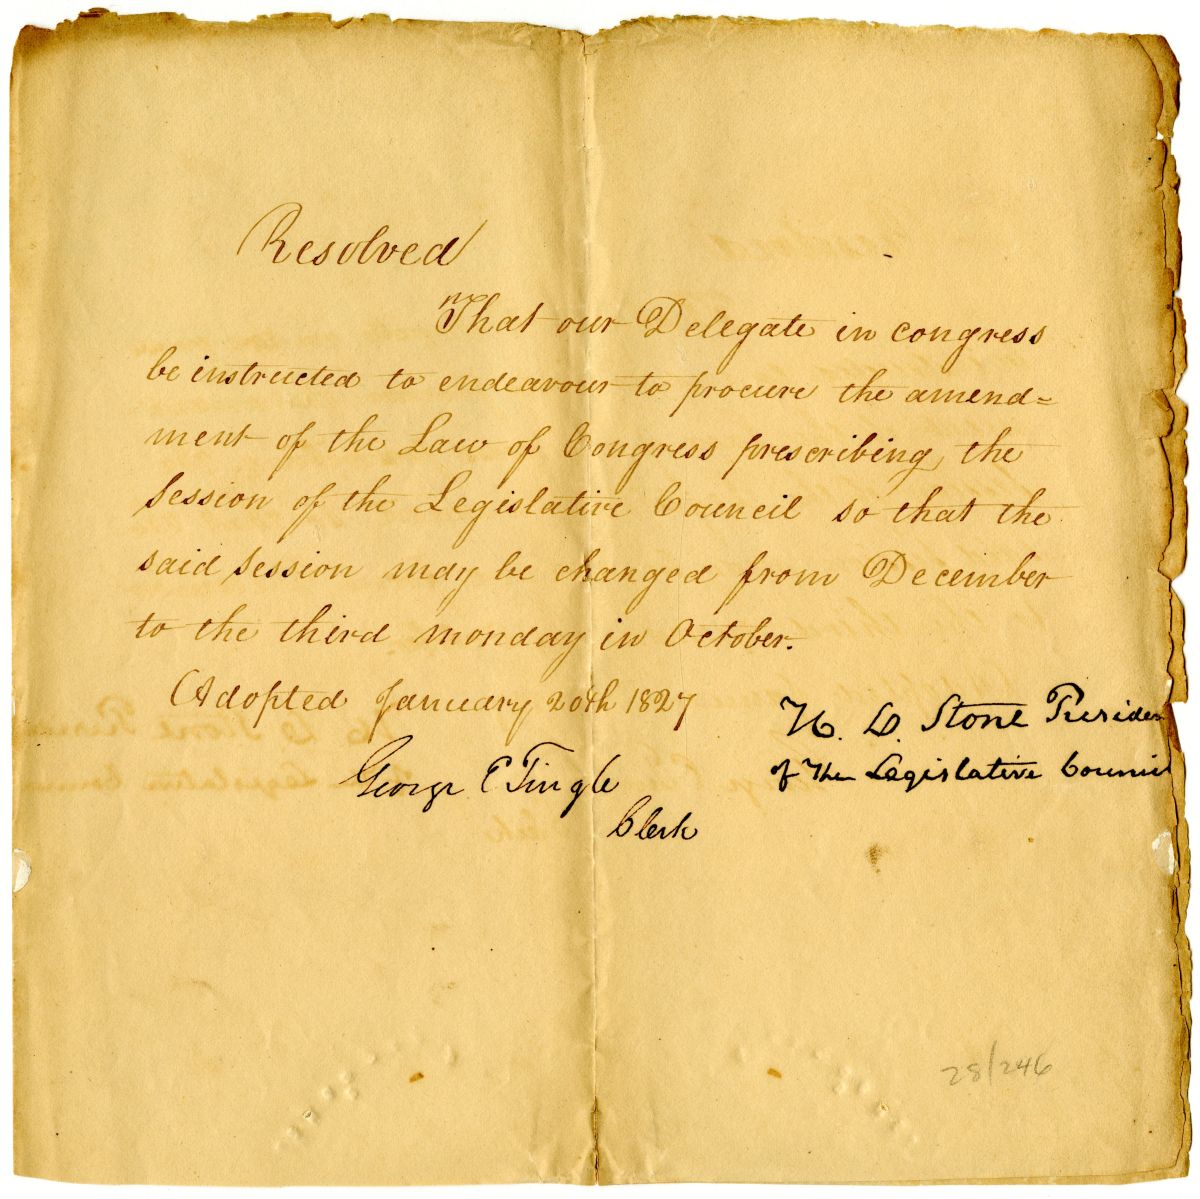 Resolved
That our Delegate in congress
be instructed to endeavour to procure the amend=
ment of the Law of Congress prescribing the
Session of the Legislative Council so that the
said Session may be changed from December
to the third monday in October.
Adopted January 20th 1827
H. D. Stone Presiden
of the Legislative Council
George E Tingle
Clerk
28/246